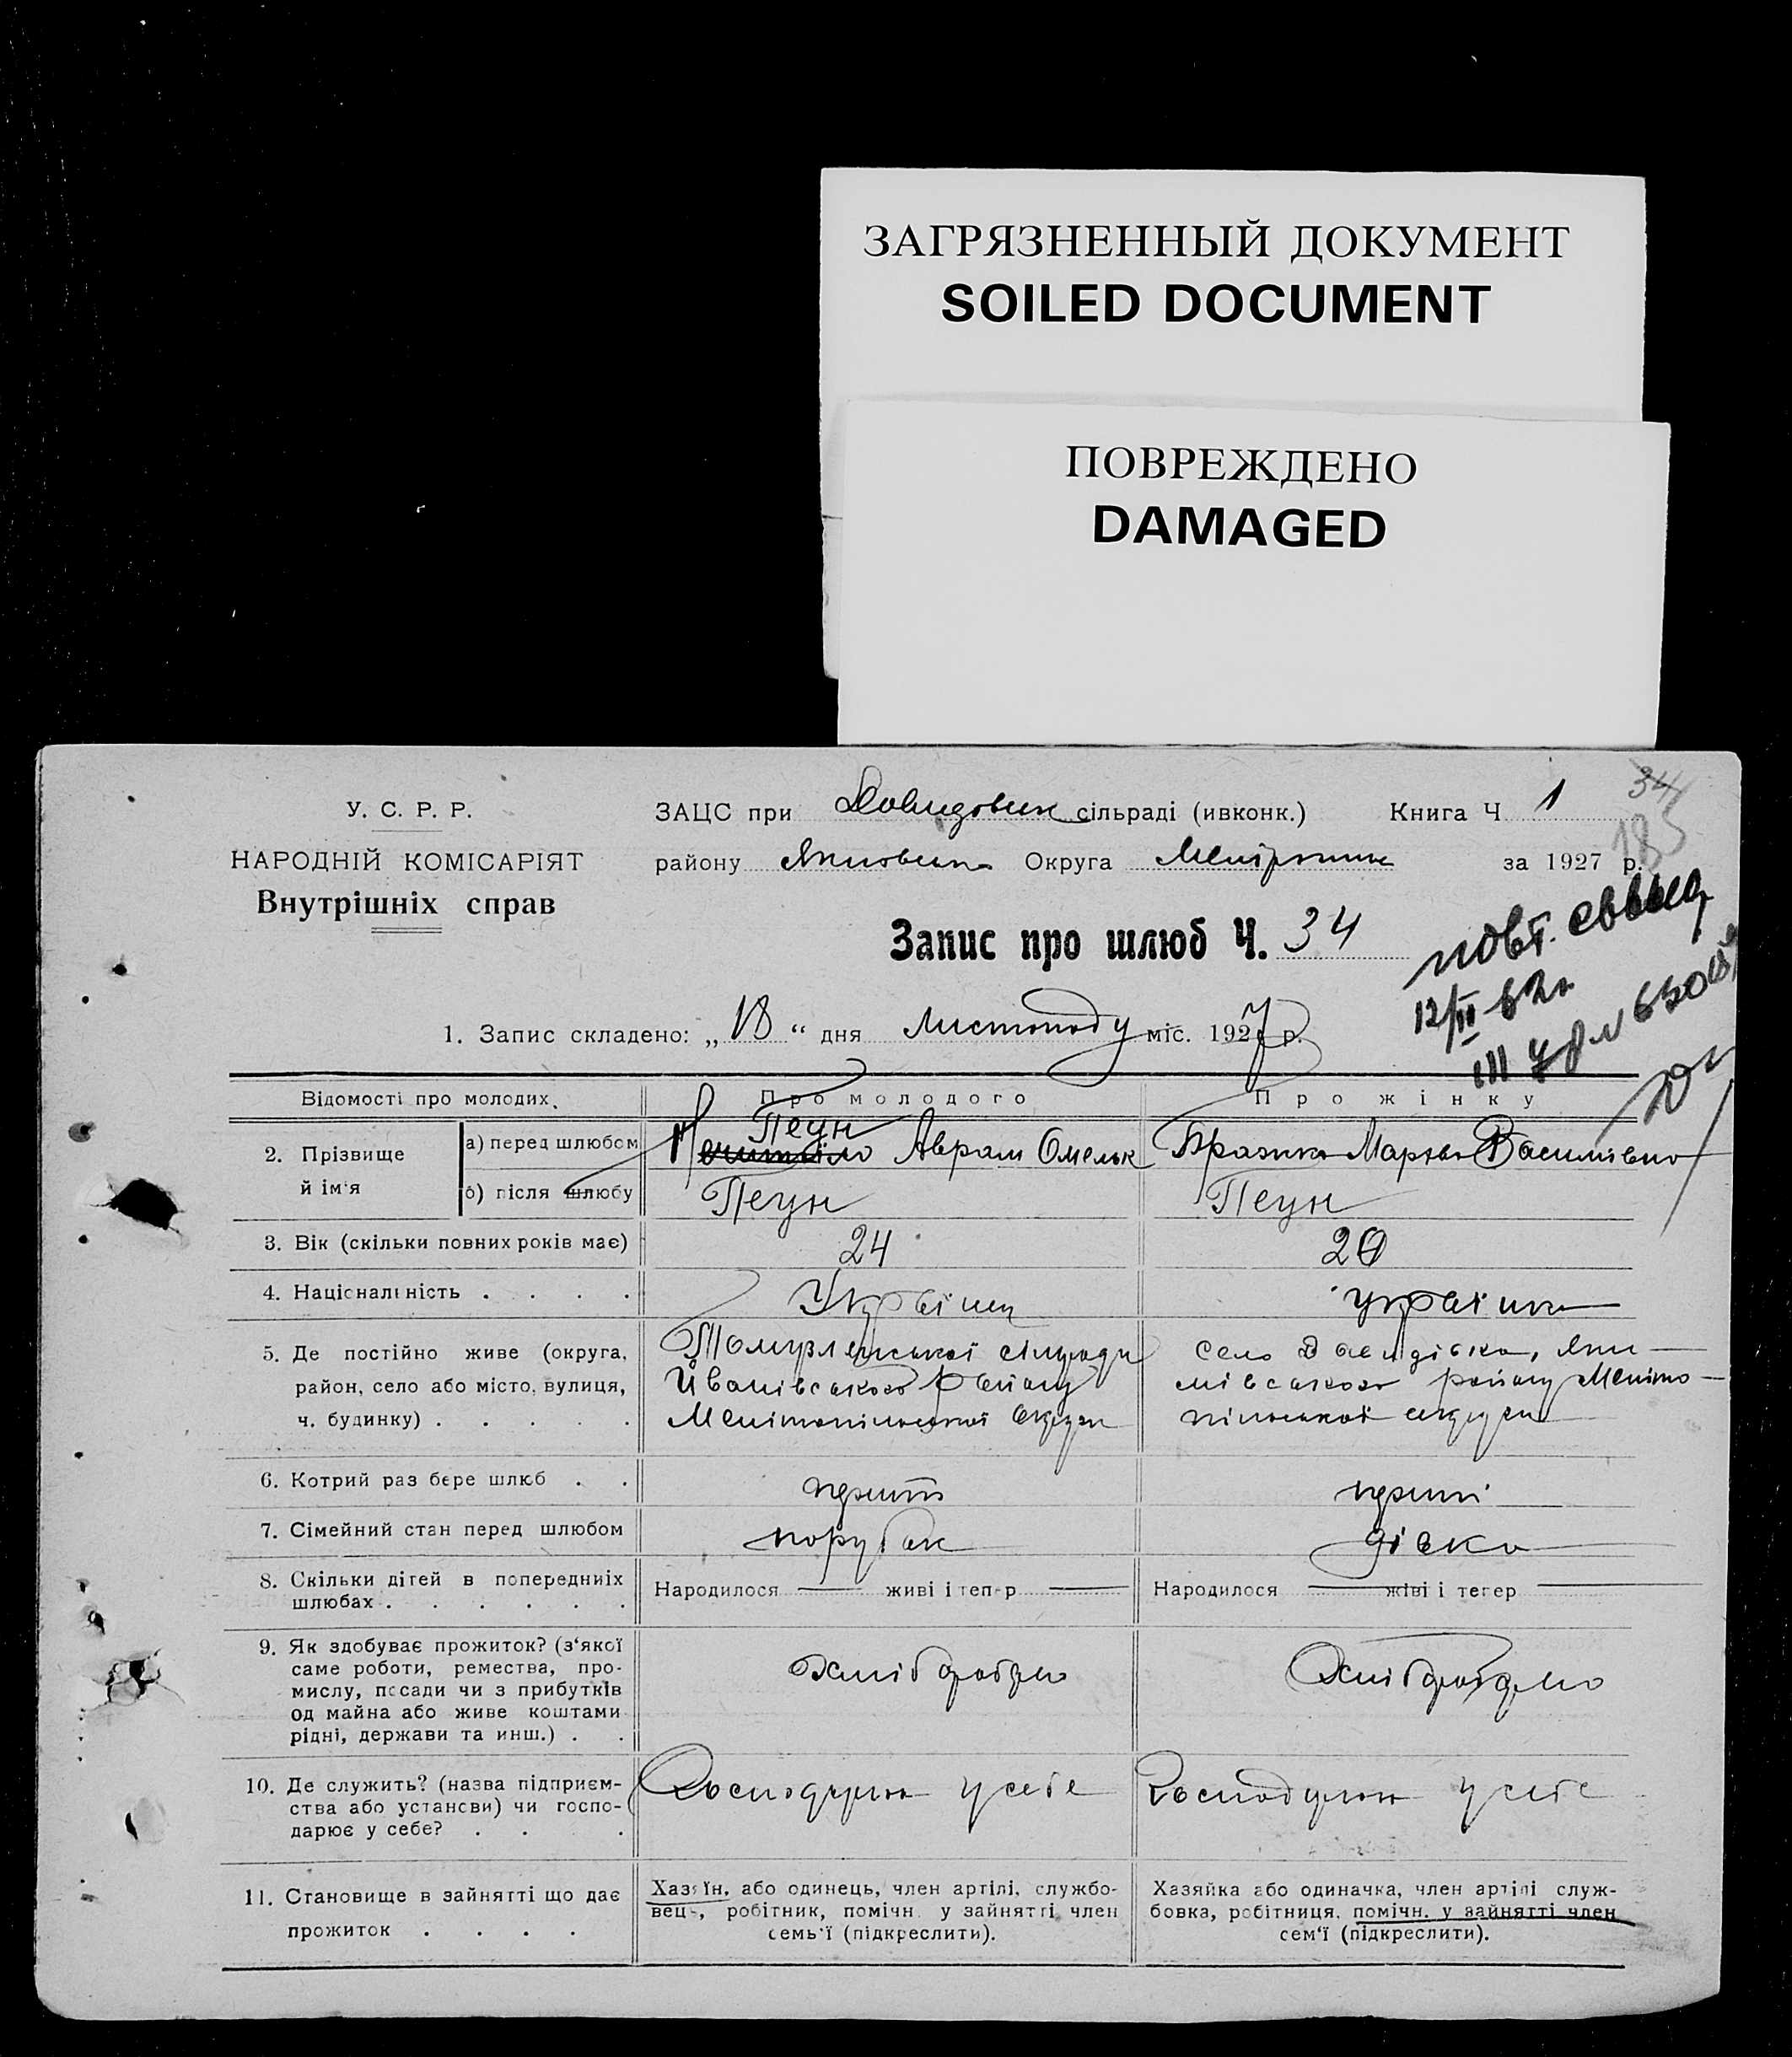 ЗАГРЯЗНЕННЫЙ ДОКУМЕНТ
SOILED DOCUMENT
ПОВРЕЖДЕНО
DAMAGED
34
185
У. С. Р. Р.
НАРОДНІЙ КОМІСАРІЯТ
Внутрішніх справ
ЗАЦС при сільраді (ивконк.) Книга Ч 1
району Округа за 1927 р.
Запис про шлюб Ч. 34
повт.
12/II 62г
III
1. Запис складено: „18“ дня листопаду міс. 1927 р.
Відомості про молодих. Про молодого Про жінку
2. Прізвище й ім'я
а) перед шлюбом Пеун Аврам Омельк Марія Василівна
б) після шлюбу Пеун Пеун
3. Вік (скільки повних років має) 24 20
4. Національність . . . . Українец українка
5. Де постійно живе (округа, сільради село Давидівка, Яки-
район, село або місто, вулиця, Йванівського району мівського району Меліто-
ч. будинку) . . . . . Мелітопільської округи пільської округи
6. Котрий раз бере шлюб . . перший перший
7. Сімейний стан перед шлюбом парубак дівка
8. Скільки дітей в попередніх Народилося — живі і тепер — Народилося — живі і тепер —
шлюбах . . . . . .
9. Як здобуває прожиток? (з'якої
саме роботи, ремества, про- Хлібороб Хлібороб
мислу, посади чи з прибутків
од майна або живе коштами
рідні, держави та инш.) . .
10. Де служить? (назва підприєм- у себе у себе
ства або установи) чи госпо-
дарює у себе? . . .
11. Становище в зайнятті що дає Хазяїн, або одинець, член артілі, службо- Хазяйка або одиначка, член артілі служ-
вець, робітник, помічн. у зайнятті член бовка, робітниця, помічн. у зайнятті член
прожиток . . . . семь'ї (підкреслити). сем'ї (підкреслити).